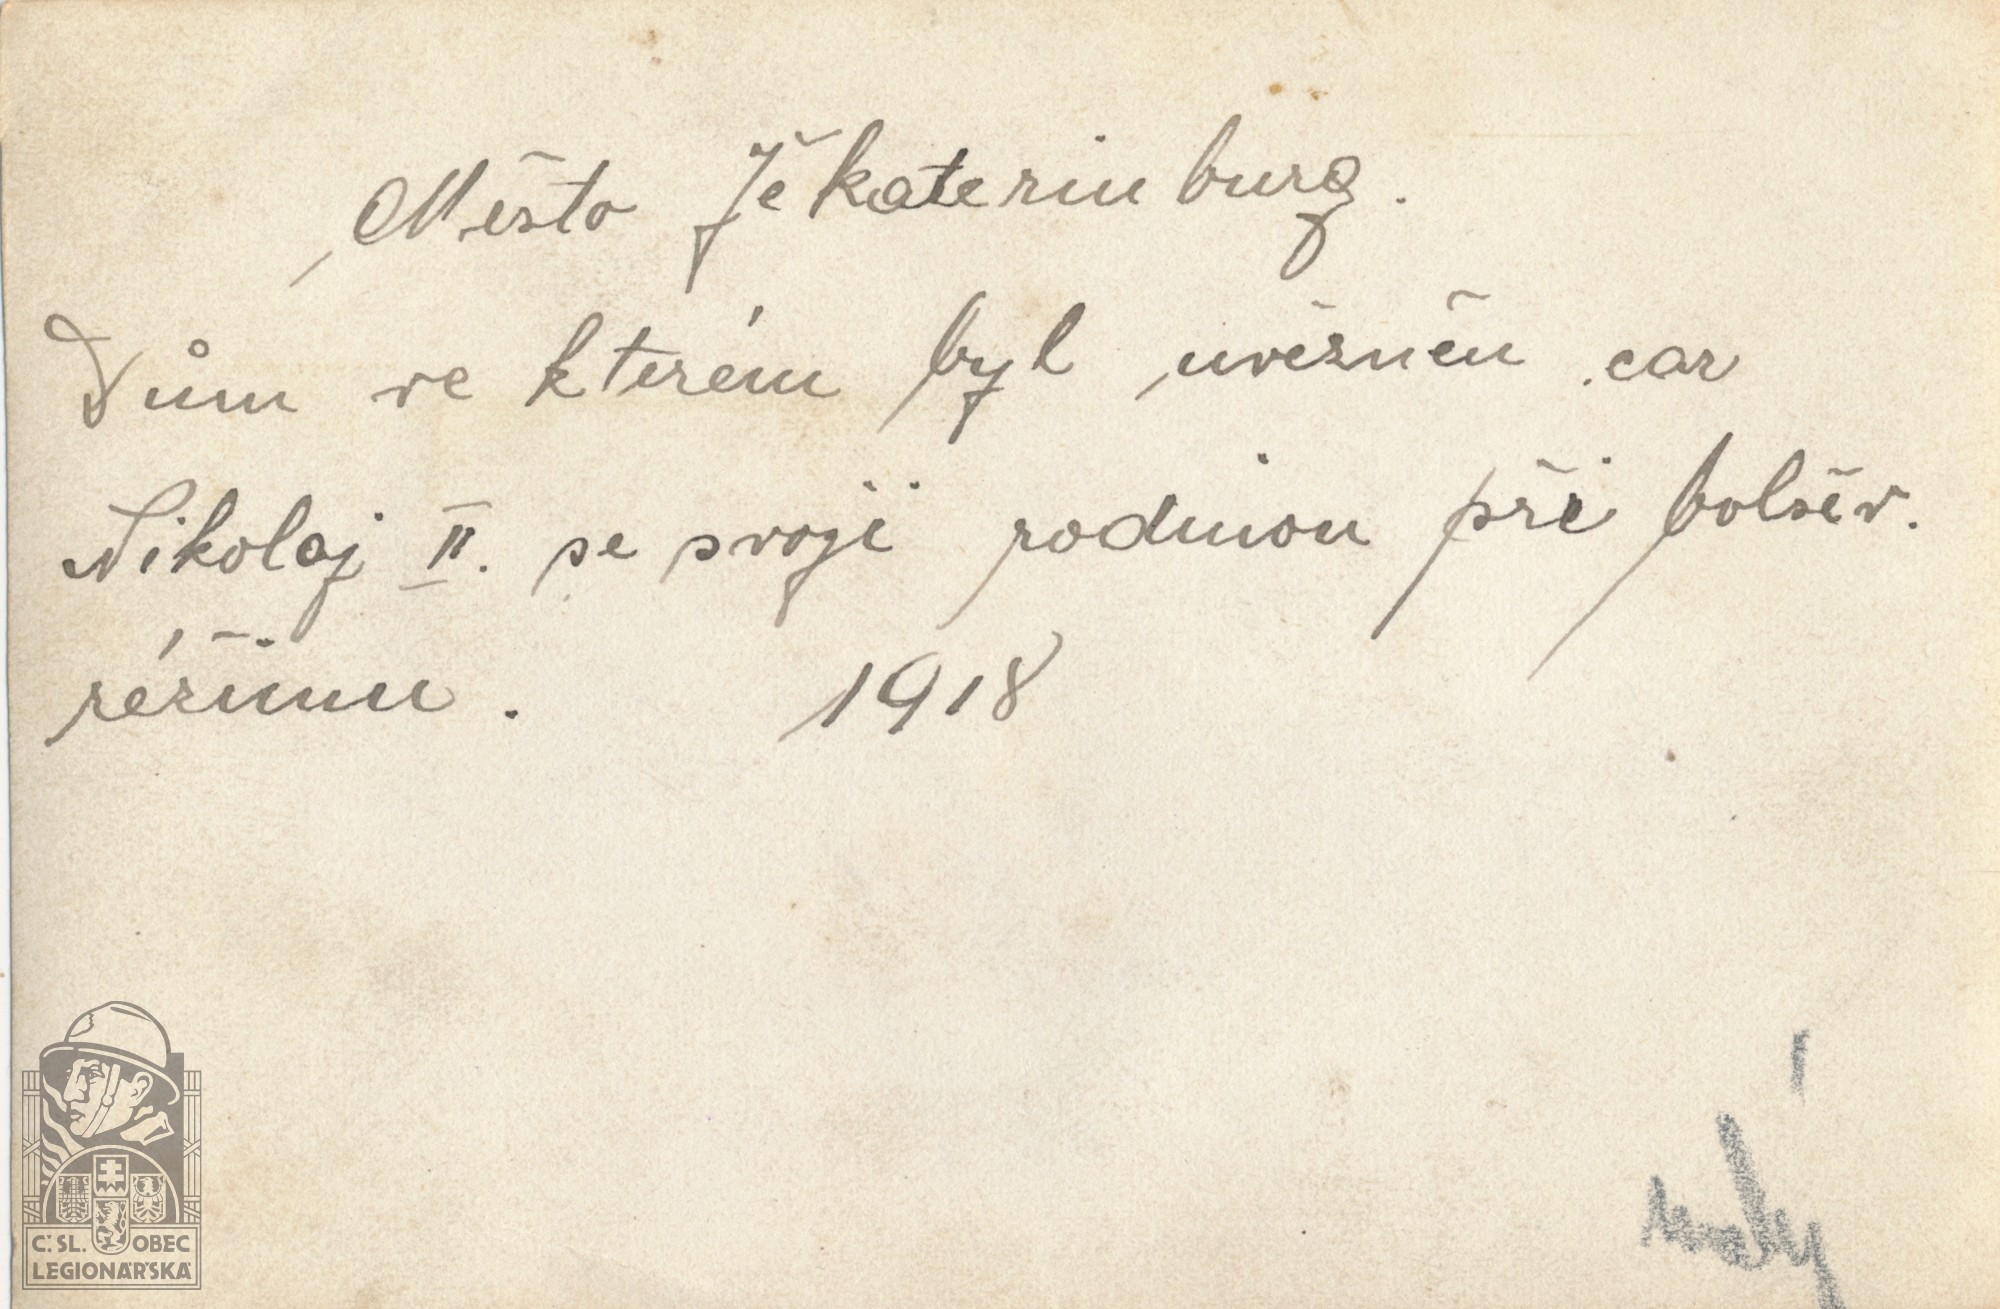 Město Jěkaterinburg.
Dům ve kterém byl uvězněn car
Nikolaj II. se svoji rodinou při bolsěv.
réžimu. 1918
malý
Č.SL. OBEC
LEGIONÁŘSKÁ